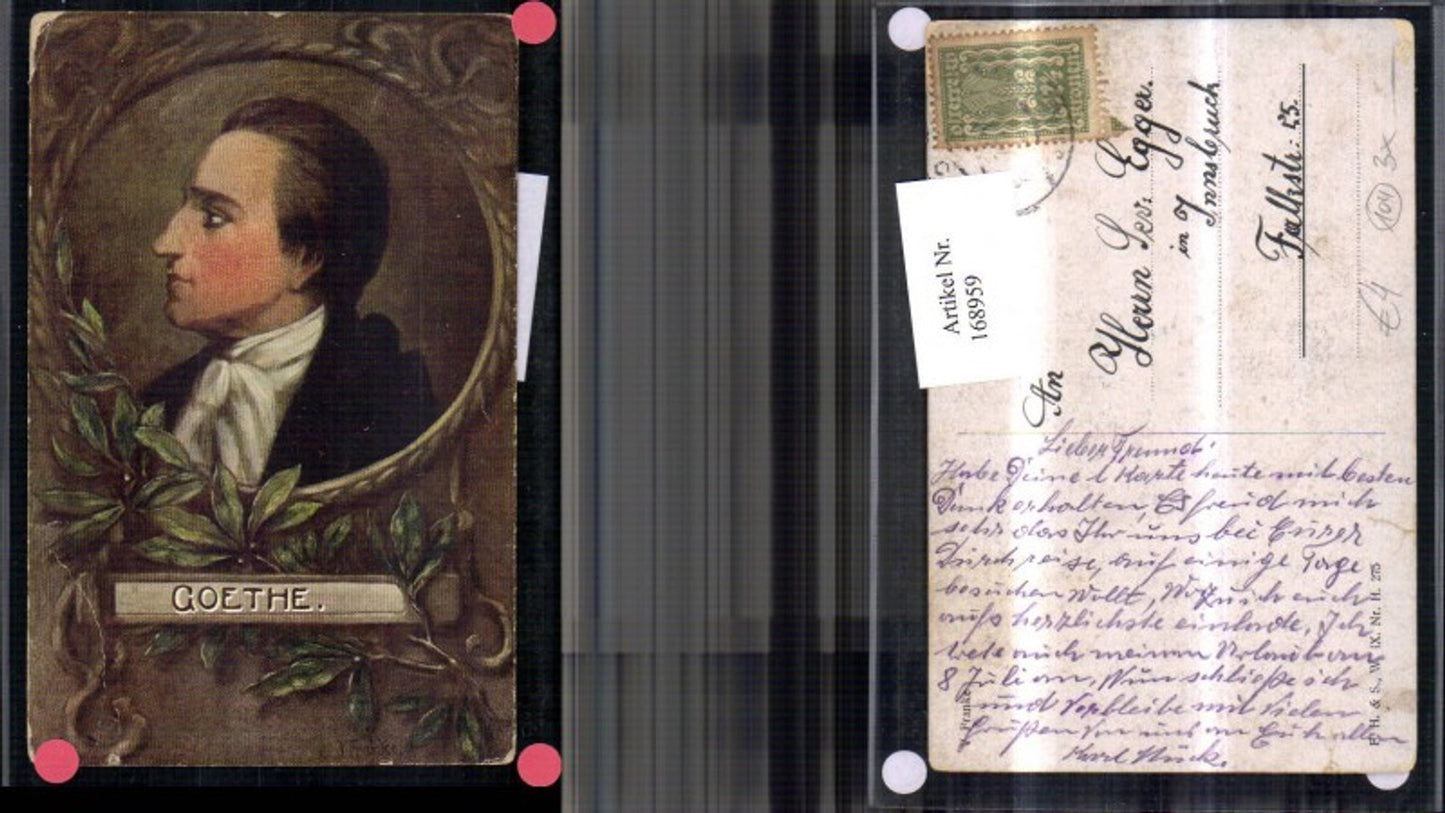 GOETHE.
Artikel Nr.
168959
An
Herrn Sev. Egger.
in Innsbruck
Falkstr: 25.
104 3x
€4
Lieber Freund!
Habe Deine l Karte heute mit besten
Dank erhalten, Es freud mich
sehr das Ihr uns bei Eurer
Durchreise, auf einige Tage
besuchen wollt, Wozu ich euch
aufs herzlichste einlade, Ich
trete auch meinen Urlaub am
8 Juli an, Nun schließe ich
und verbleibe mit vielen
Grüßen von uns an Euch allen
Karl
F. H. & S., W. IX. Nr. H. 275